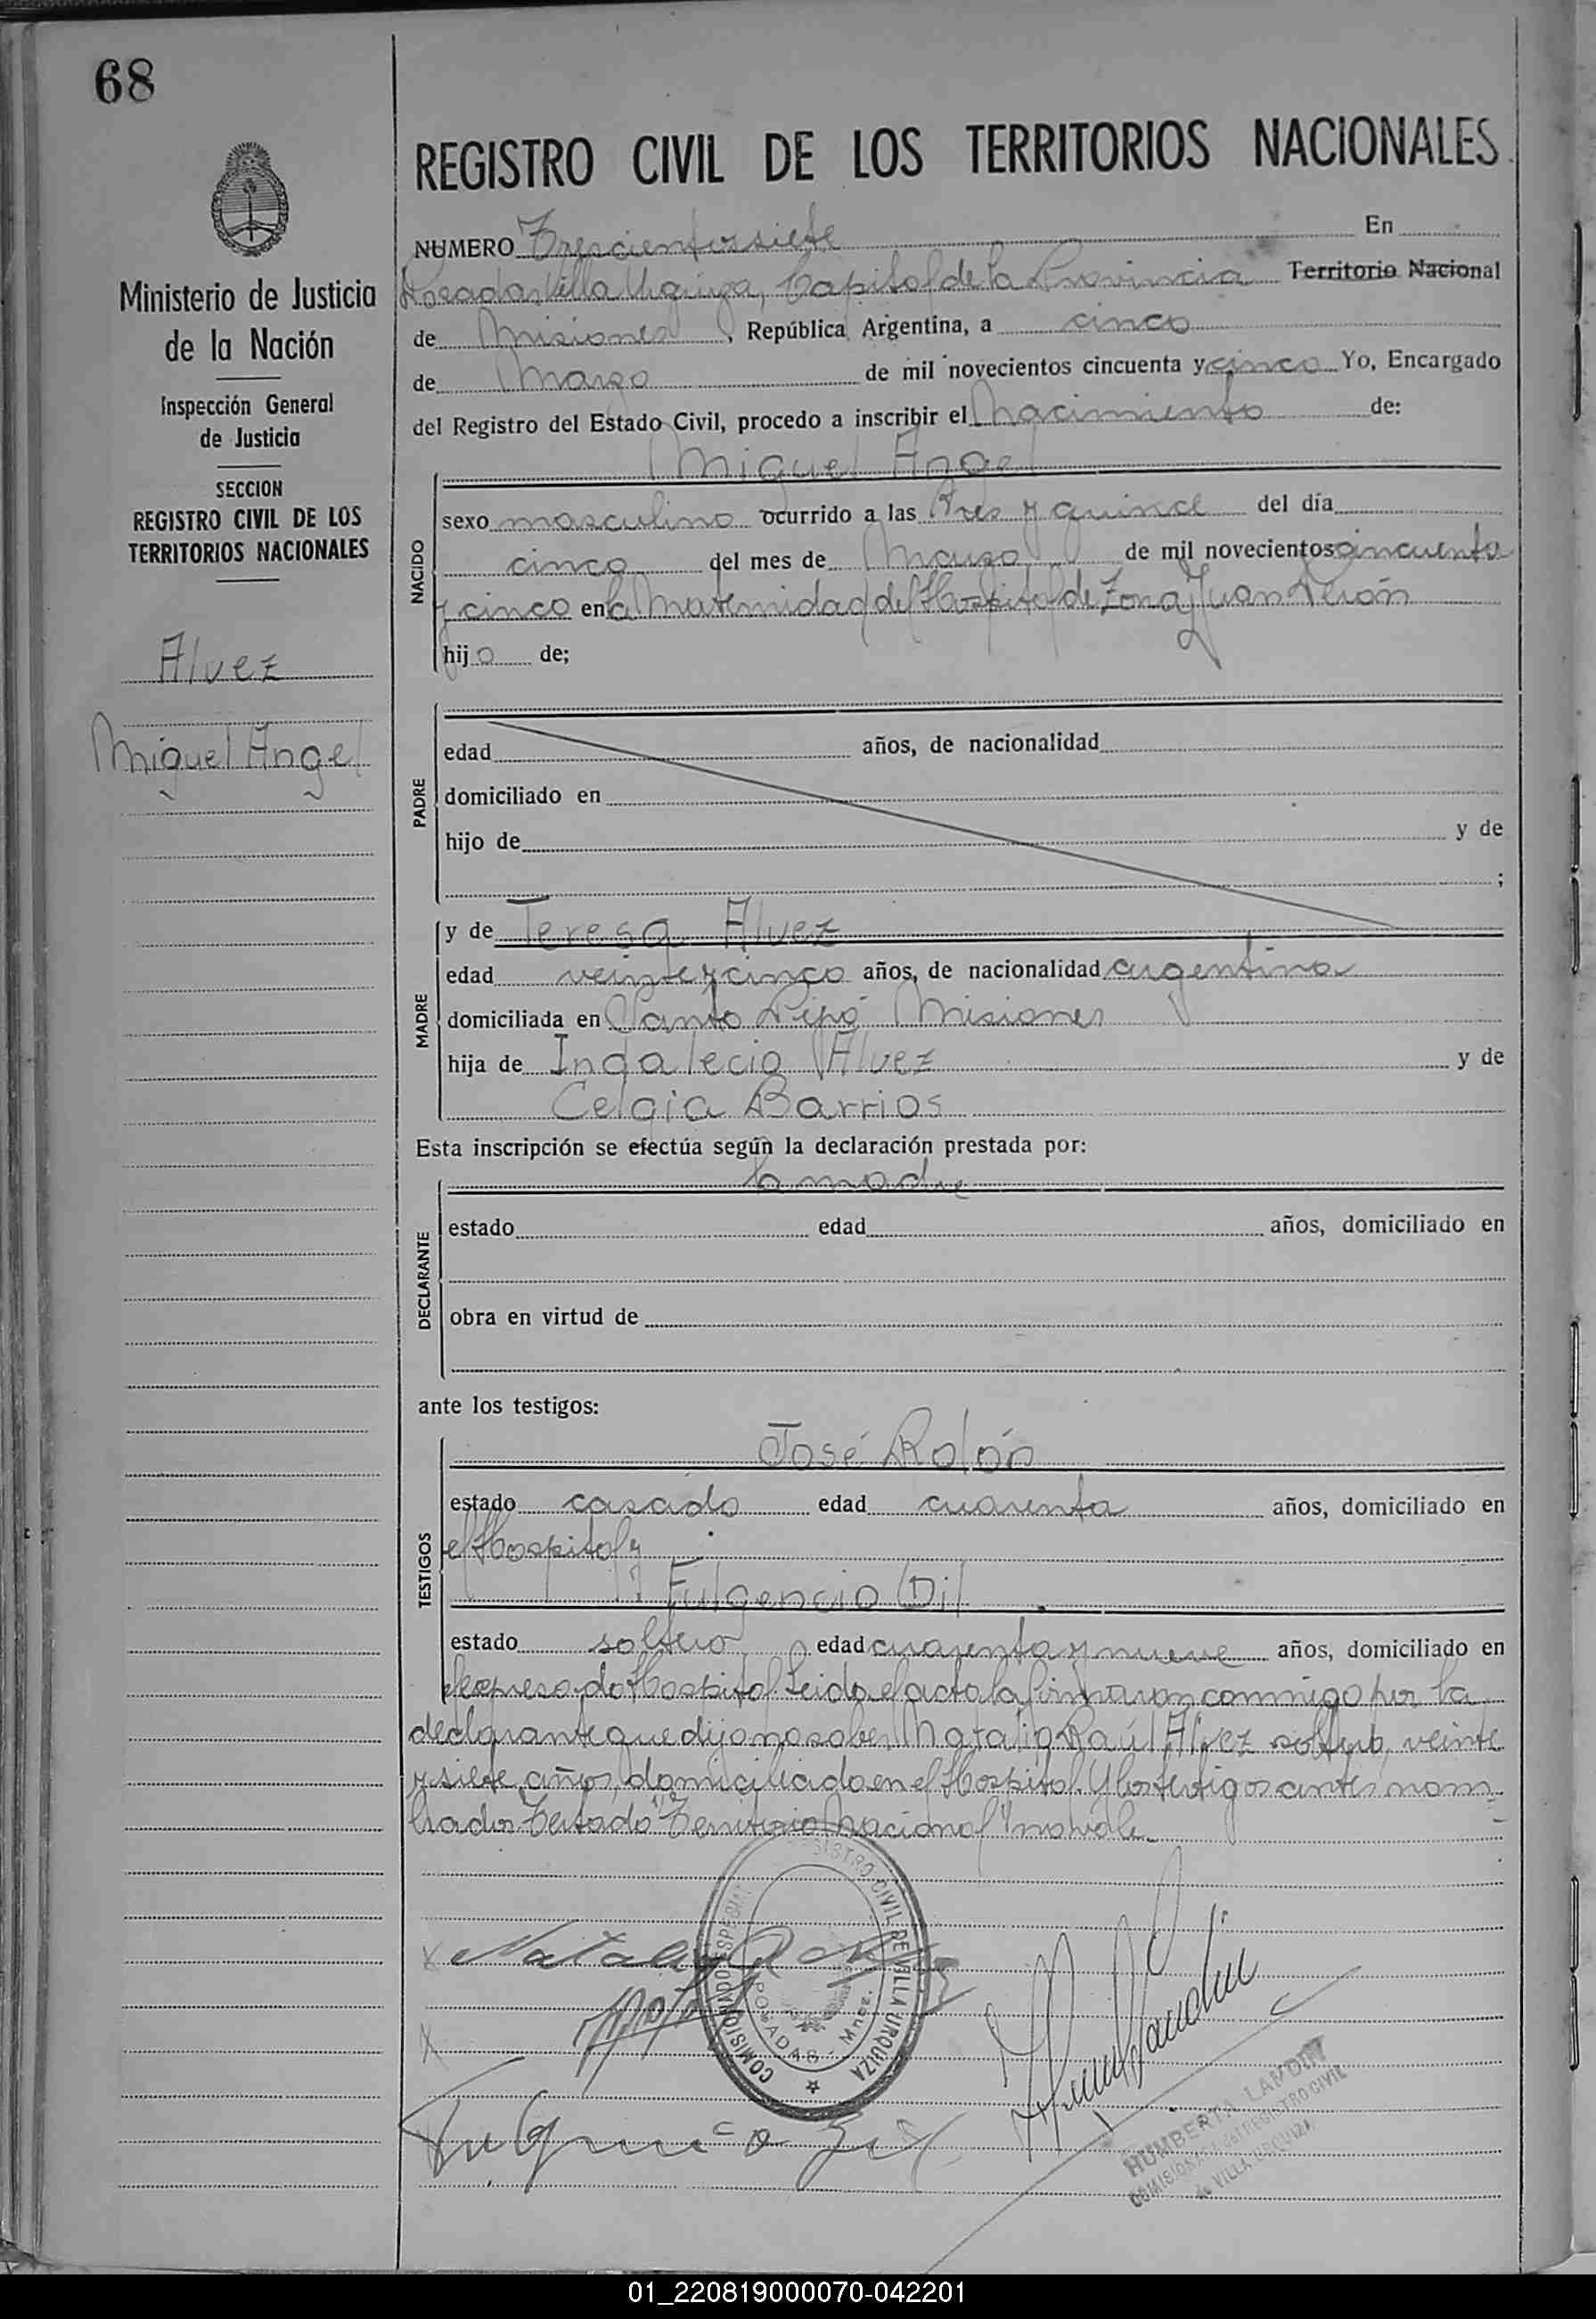 68
Ministerio de Justicia
de la Nación
Inspección General
de Justicia
SECCION
REGISTRO CIVIL DE LOS
TERRITORIOS NACIONALES
Alvez
Miguel Angel
REGISTRO CIVIL DE LOS TERRITORIOS NACIONALES
NUMERO Trescientos siete En
Posadas Villa Urquiza, Capital de la Provincia Territorio Nacional
de Misiones, República Argentina, a cinco
de Marzo de mil novecientos cincuenta y cinco Yo, Encargado
del Registro del Estado Civil, procedo a inscribir el Nacimiento de:
Miguel Angel
NACIDO
sexo masculino ocurrido a las tres y quince del día
cinco del mes de Marzo de mil novecientos cincuenta
y cinco en la Maternidad del Hospital de Zona Juan Perón
hijo de;
PADRE
edad años, de nacionalidad
domiciliado en
hijo de y de
;
MADRE
y de Teresa Alvez
edad veinte y cinco años, de nacionalidad argentina
domiciliada en Santo Pipó Misiones
hija de Indalecio Alvez y de
Celgia Barrios
Esta inscripción se efectúa según la declaración prestada por:
la madre
DECLARANTE
estado edad años, domiciliado en
obra en virtud de
ante los testigos:
TESTIGOS
José Rolón
estado casado edad cuarenta años, domiciliado en
el Hospital y
Fulgencio Dil
estado soltero edad cuarenta y nueve años, domiciliado en
el expresado Hospital. Leida el acta la firmaron conmigo por la
declarante que dijo no saber Natalio Raúl Alvez soltero, veinte
y siete años, domiciliado en el Hospital. Y los testigos antes nom-
brados. Testado "Territorio Nacional" no vale.
COMISIONADO ESPECIAL REGISTRO CIVIL DE VILLA URQUIZA
POSADAS - Mnes.
HUMBERTA LANDIN
COMISIONADA del REGISTRO CIVIL
de VILLA URQUIZA
01_220819000070-042201